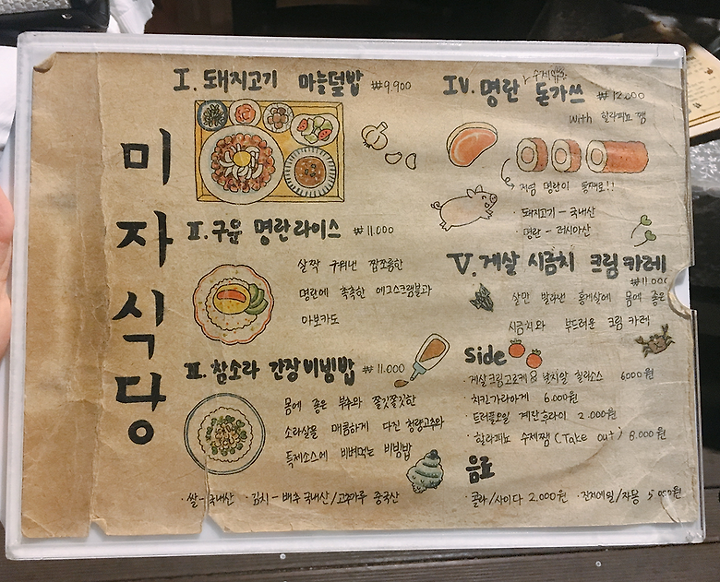 미자식당
I. 돼지고기 마늘덮밥 ₩9,900
II. 구운 명란라이스 ₩11.000
살짝 구워낸 짭쪼름한
명란에 촉촉한 에그스크램블과
아보카도
III. 참소라 간장비빔밥 ₩11.000
몸에 좋은 부추와 쫄깃쫄깃한
소라살을 매콤하게 다진 청량고추와
특제소스에 비벼먹는 비빔밥
· 쌀 - 국내산 · 김치 - 배추 국내산 / 고추가루 중국산
IV. 명란 돈가쓰 ₩12.000
with 할라피뇨 잼
저염 명란이 통째로!!
· 돼지고기 - 국내산
· 명란 - 러시아산
V. 게살 시금치 크림카레
₩11.000
살만 발라낸 홍게살에 몸에 좋은
시금치와 부드러운 크림 카레
Side
· 게살크림고로케 & 날치알 칠리소스 6000원
· 치킨가라아게 6.000원
· 트러플오일 계란후라이 2.000원
· 할라피뇨 수제잼 (Take out) 8.000원
음료
· 콜라/사이다 2.000원 · 진저에일/자몽 5.000원